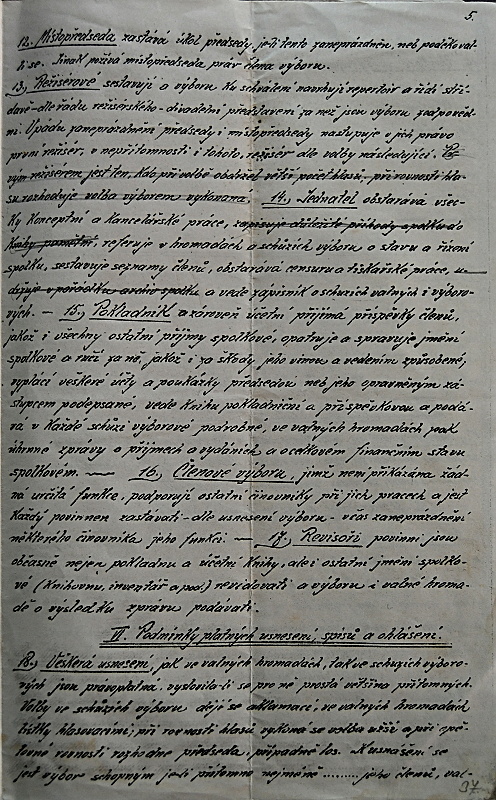 5.
12. Místopředseda zastává úkol předsedy, je-li tento zaneprázdněn, neb poděkoval-
li se. Jinak požívá místopředseda práv člena výboru.
13.) Režiserové sestavují a výboru ku schválení navrhují repertoir a řídí stří-
davě - dle řádu režisérského - divadelní představení za něž jsou výboru zodpověd-
ni. V pádu zaneprázdnění předsedy i místopředsedy nastupuje v jich právo
první režisér, v nepřítomnosti i tohoto, režisér dle volby následující. Pr-
vým režiserem jest ten, kdo při volbě obdržel větší počet hlasů, při rovnosti hla-
sů rozhoduje volba výborem vykonaná. 14.) Jednatel obstarává všec-
ky konceptní a kancelářské práce, zapisuje důležité příhody spolku do
knihy pamětní, referuje v hromadách a schůzích výboru o stavu a řízení
spolku, sestavuje seznamy členů, obstarává censuru a tiskařské práce, u-
držuje v pořádku archiv spolku a vede zápisník o schůzích valných i výboro-
vých. — 15.) Pokladník a zároveň účetní přijímá příspěvky členů,
jakož i všechny ostatní příjmy spolkové, opatruje a spravuje jmění
spolkové a ručí za ně, jakož i za škody jeho vinou a vedením způsobené,
vyplácí veškeré účty a poukázky předsedou neb jeho oprávněným zá-
stupcem podepsané, vede knihu pokladniční a příspěvkovou a podá-
vá v každé schůzi výborové podrobné, ve valných hromadách pak
úhrnné zprávy o příjmech a vydáních a o celkovém finančním stavu
spolkovém. — 16.) Členové výboru, jimž není přikázána žád-
ná určitá funkce, podporují ostatní činovníky při jich pracech a jest
každý povinnen zastávati - dle usnesení výboru - včas zaneprázdnění
některého činovníka jeho funkci. — 17.) Revisoři povinni jsou
občasně nejen pokladnu a účetní knihy, ale i ostatní jmění spolko-
vé (knihovnu, inventář a pod.) revidovati a výboru i valné hroma-
dě o výsledku zprávu podávati.
VI. Podmínky platných usnesení, spisů a ohlášení.
18.) Veškerá usnesení, jak ve valných hromadách, tak ve schůzích výboro-
vých jsou právoplatna, vyslovila-li se pro ně prostá většina přítomných.
Volby ve schůzích výboru dějí se aklamací, ve valných hromadách
lístky hlasovacími; při rovnosti hlasů vykoná se volba užší a při opě-
tovné rovnosti rozhodne předseda, případně los. K usnášení se
jest výbor schopným je-li přítomno nejméně ......... jeho členů, val-
37